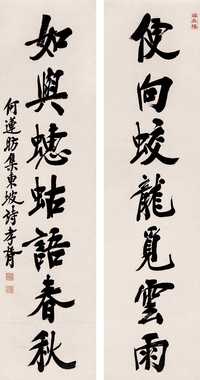 便向蛟龍覓雲雨
如與蟪蛄語春秋
何蓮舫集東坡詩孝胥